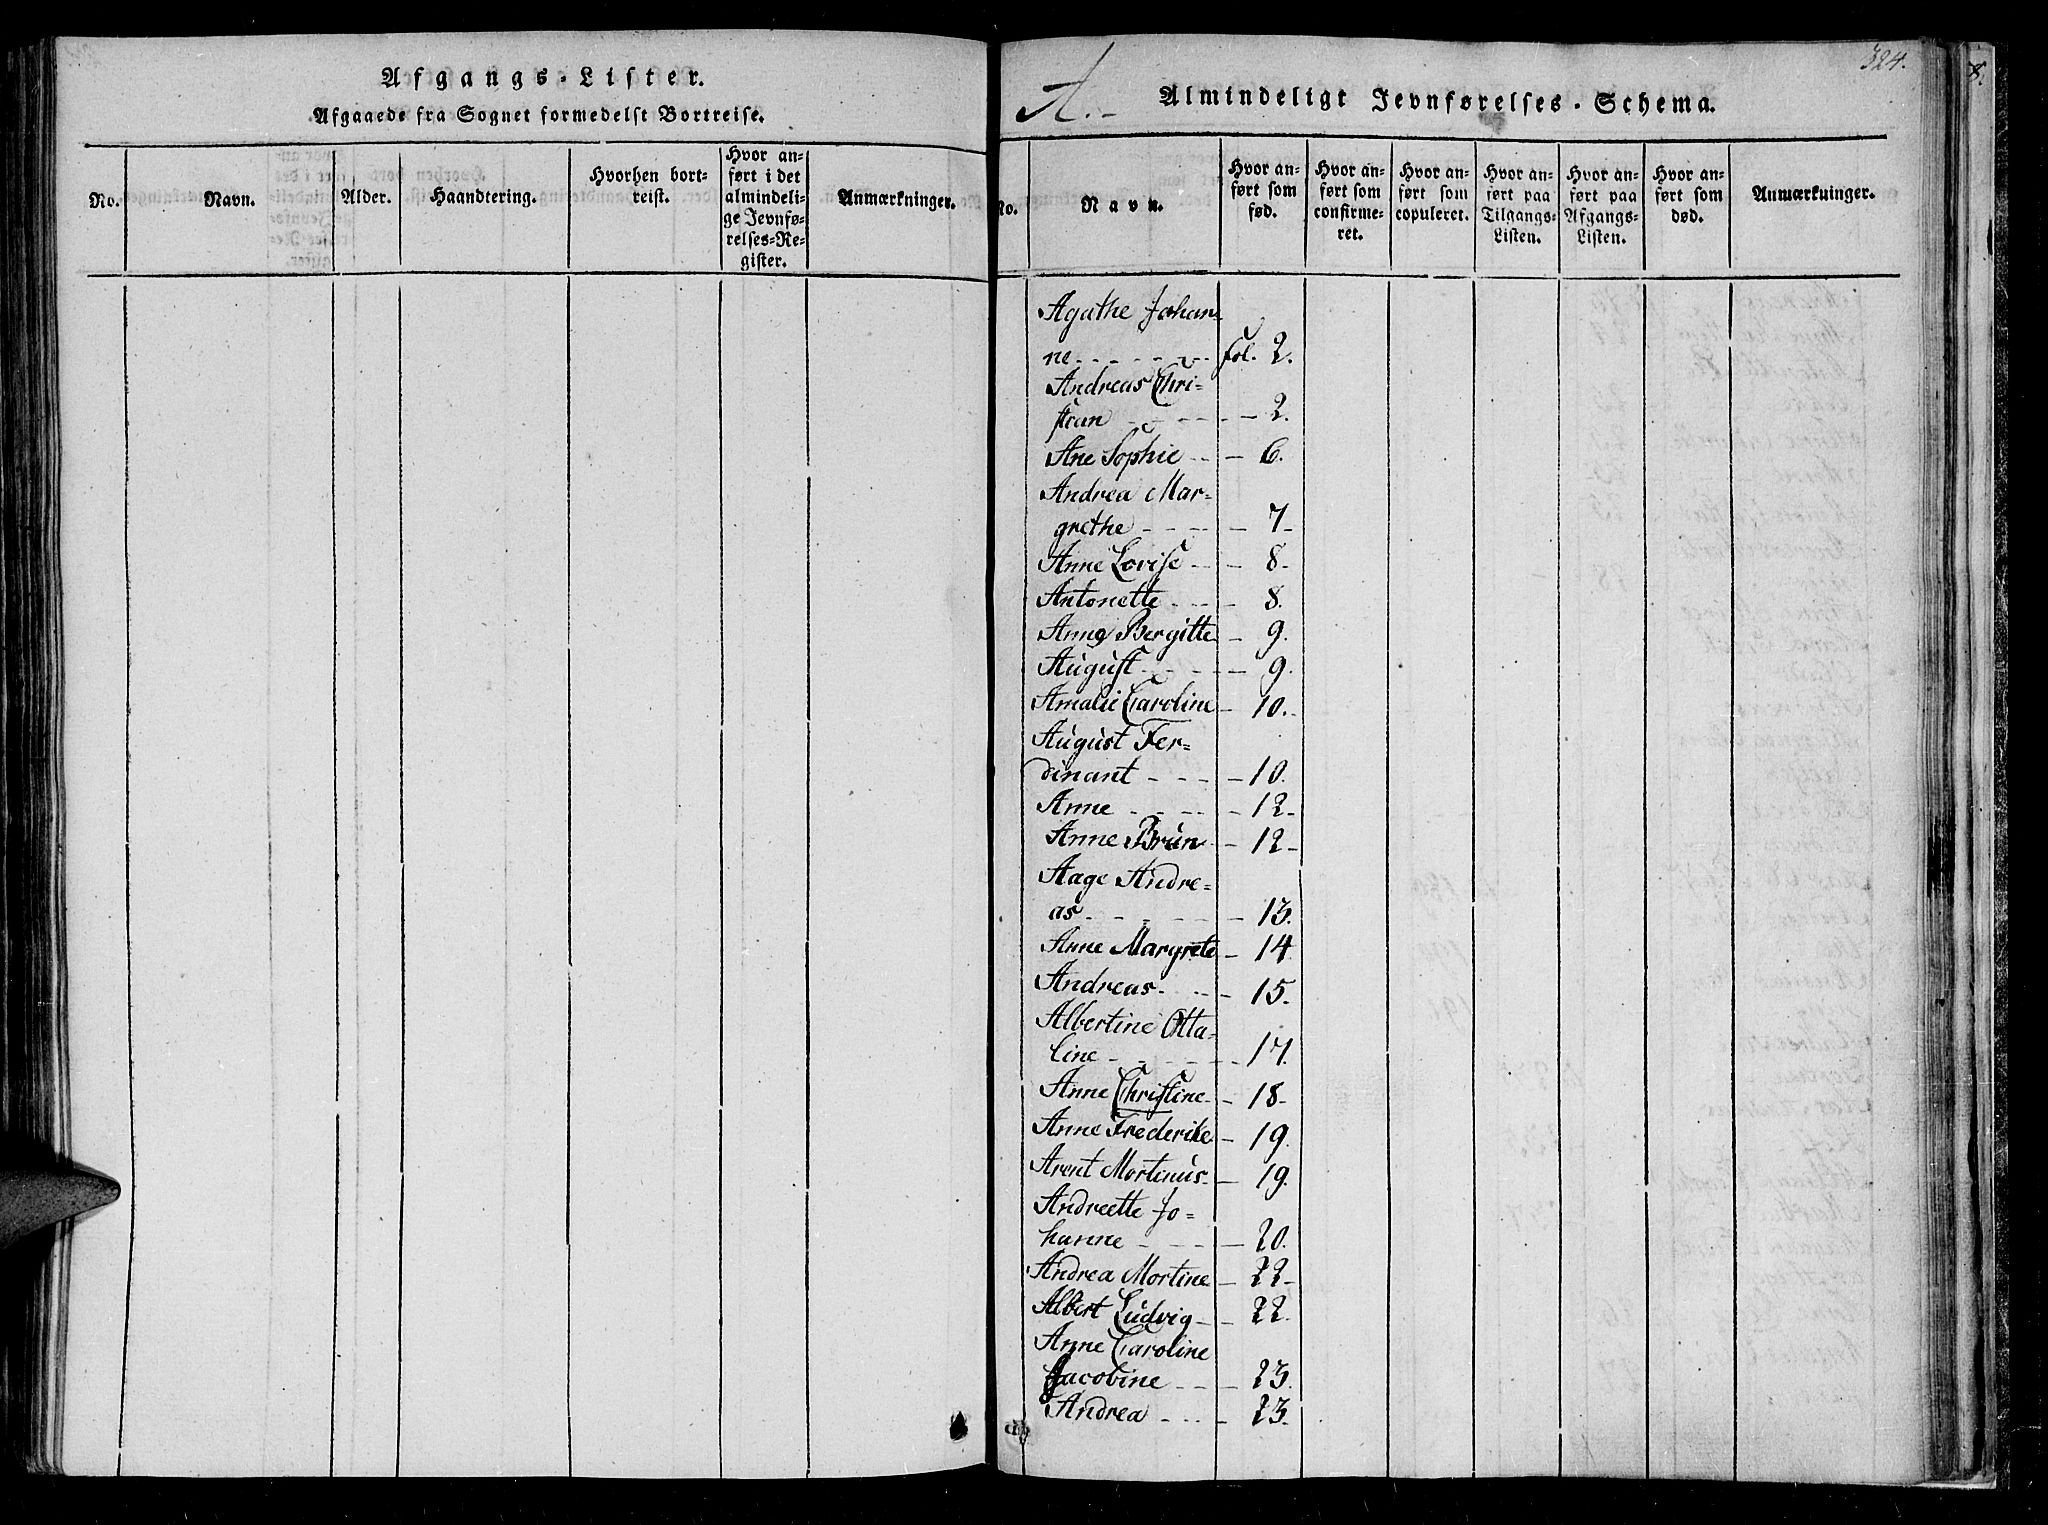 Afgangs-Lister.
Afgaaede fra Sognet formedelst Bortreise.
No.
Navn.
Alder.
Haandtering.
Hvorhen bort-
reist.
Hvor an-
ført i det
almindeli-
ge Jevnfø-
relses-Re-
gister.
Anmærkninger.
324.
A.
Almindeligt Jevnførelses-Schema.
No.
Navn.
Hvor an-
ført som
fød.
Hvor an-
ført som
confirme-
ret.
Hvor an-
ført som
copuleret.
Hvor an-
ført paa
Tilgangs-
Listen.
Hvor an-
ført paa
Afgangs-
Listen.
Hvor an-
ført som
død.
Anmærkninger.
Agathe Johan-
ne - - - - - fol. 2.
Andreas Chri-
stian - - - - 2.
Ane Sophie - - - 6.
Andrea Mar-
grethe - - - - 7-
Anne Lovise - - - 8-
Antonette - - - - 8.
Anne Bergitte - 9.
August - - - - 9.
Amalie Caroline - 10.-
August Fer-
dinant - - - - 10.
Anne - - - - 12-
Anne Brun - - 12-
Aage Andre-
as - - - - - 13.
Anne Margrete - 14
Andreas - - - 15.
Albertine Otta-
line - - - - - 17.
Anne Christine - - 18-
Anne Frederike - 19.
Arent Mortinus - - 19.
Andreette Jo-
hanne - - - - 20.
Andrea Mortine - 22-
Albert Ludvig - - 22.
Anne Caroline
Jacobine - - - 23.
Andrea - - - - 23.